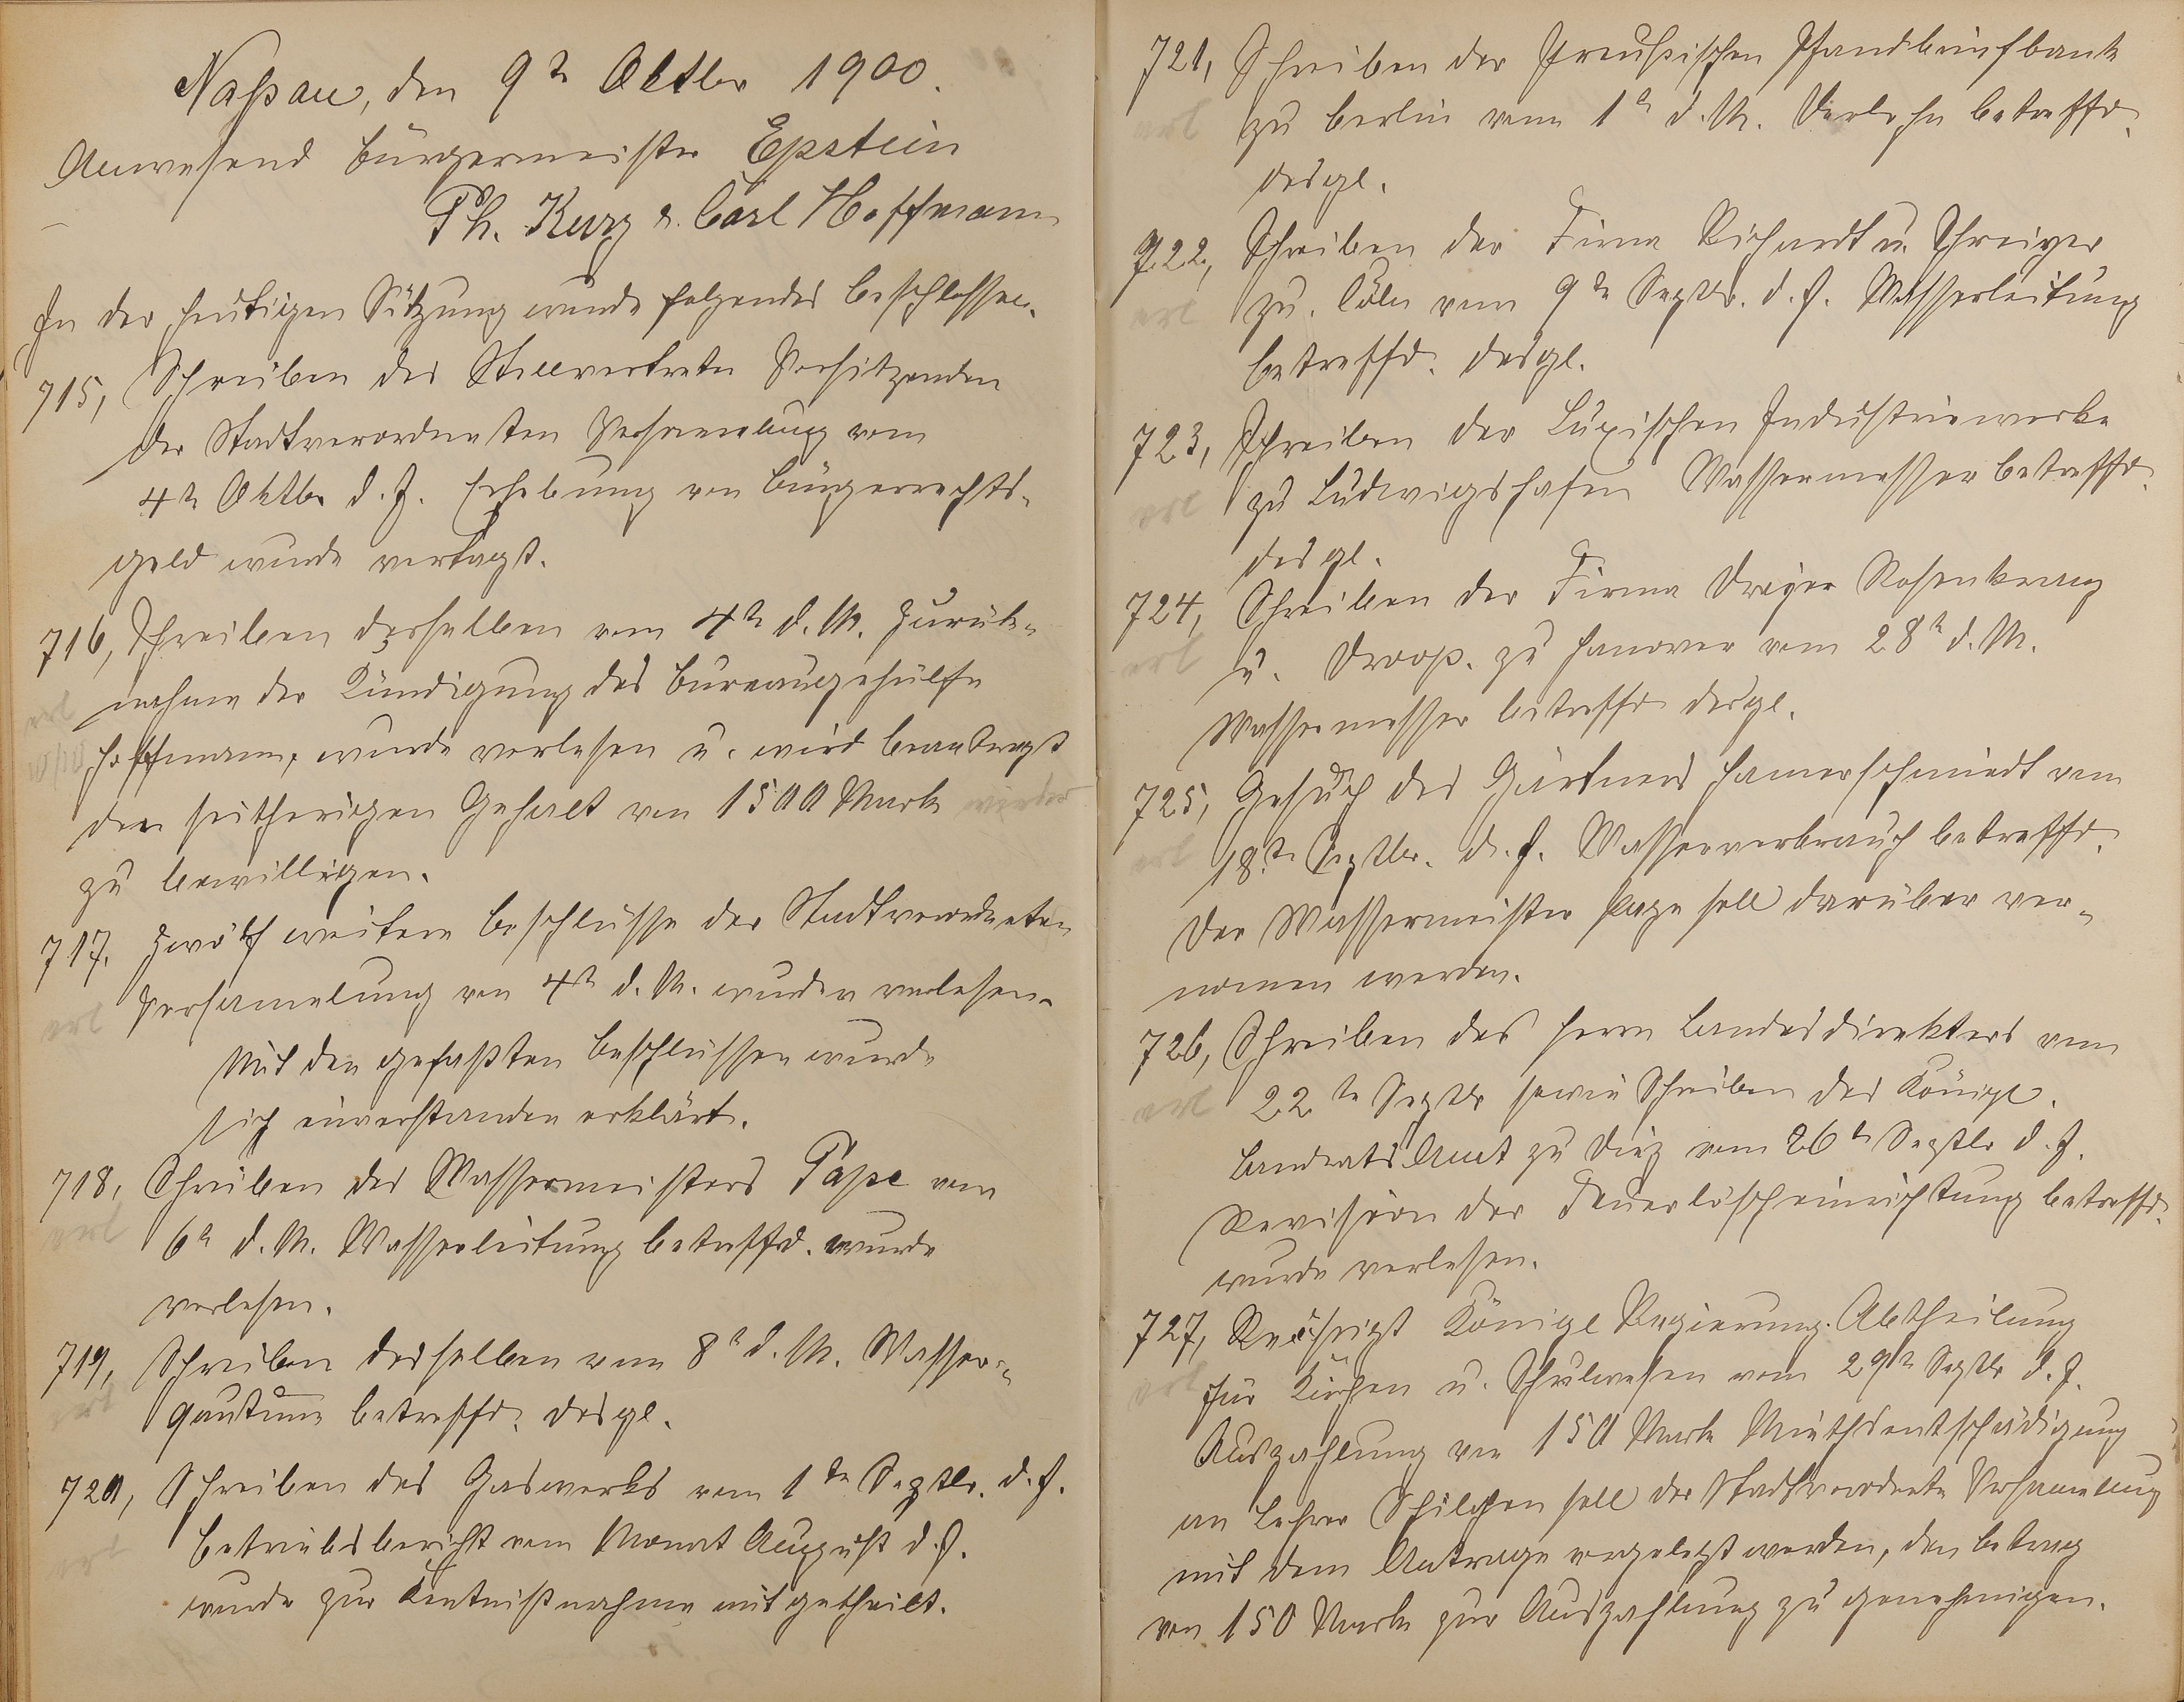 Naßau, den 9ten Oktbr 1900.
Anwesend Bürgermeister Epstein
Ph. Kurz & Carl Hoffmann
In der heutigen Sitzung wurde folgendes beschlossen.
715, Schreiben des Stellvertreter Vorsitzenden
der Stadtverordneten Versamelung vom
4ten Oktbr d. J. Erhebung von Bürgerrechts-
geld wurde vertagt.
716, Schreiben desselben vom 4ten d. M. Zurück-
erl nahme der Kündigung des Bureaugehülfe
Hoffmann, wurde verlesen u. wird beantragt
den seitherigen Gehalt von 1500 Mark wieder
zu bewilligen.
717. Zwölf weitere Beschlüsse der Stadtverordneten
erl Versamelung vom 4ten d. M. wurden verlesen.
Mit den gefaßten Beschlüssen wurde
sich einverstanden erklärt.
718, Schreiben des Wassermeisters Pape vom
erl 6ten d. M. Wasserleitung betreffd. wurde
verlesen.
719, Schreiben desselben vom 8ten d. M. Wasser-
erl qautum betreffd. desgl.
720, Schreiben des Gaswerks vom 1ten Septbr. d. J.
erl Betriebsbericht vom Monat August d. J.
wurde zur Kentnißnahme mitgetheilt.
721, Schreiben der Preußischen Pfandbriefbank
erl zu Berlin vom 1ten d. M. Darlehn betreffd.
desgl.
722, Schreiben der Firma Richardt u. Schreiyer
erl zu Cöln vom 9ten Septbr. d. J. Wasserleitung
betreffd. desgl.
723, Schreiben der Luxischen Industriewerke
erl zu Ludwigshafen Wassermesser betreffd.
desgl.
724, Schreiben der Firma Dreyer Rosenkranz
erl u. Droop. zu Hanover vom 28ten d. M.
Wassermesser betreffd desgl.
725, Gesuch des Gärtners Hamerschmiedt vom
erl 18ten Septbr. d. J. Wasserverbrauch betreffd.
Der Wassermeister Pape soll darüber ver-
nomen werden.
726, Schreiben des Herrn Landesdirektors vom
erl 22ten Septbr sowie Schreiben des Königl.
Landrats Amt zu Diez vom 26ten Septbr d. J.
Revision der Feuerlöscheinrichtung betreffd.
wurde verlesen.
727, Königl Regierung. Abtheilung
erl für Kirchen u. Schulwesen vom 29ten Septbr d. J.
Auszahlung von 150 Mark Miethsentschädigung
an Lehrer soll der Stadtverordneten Versamelung
mit dem Antrage vorgelegt werden, den Betrag
von 150 Mark zur Auszahlung zu genehmigen.